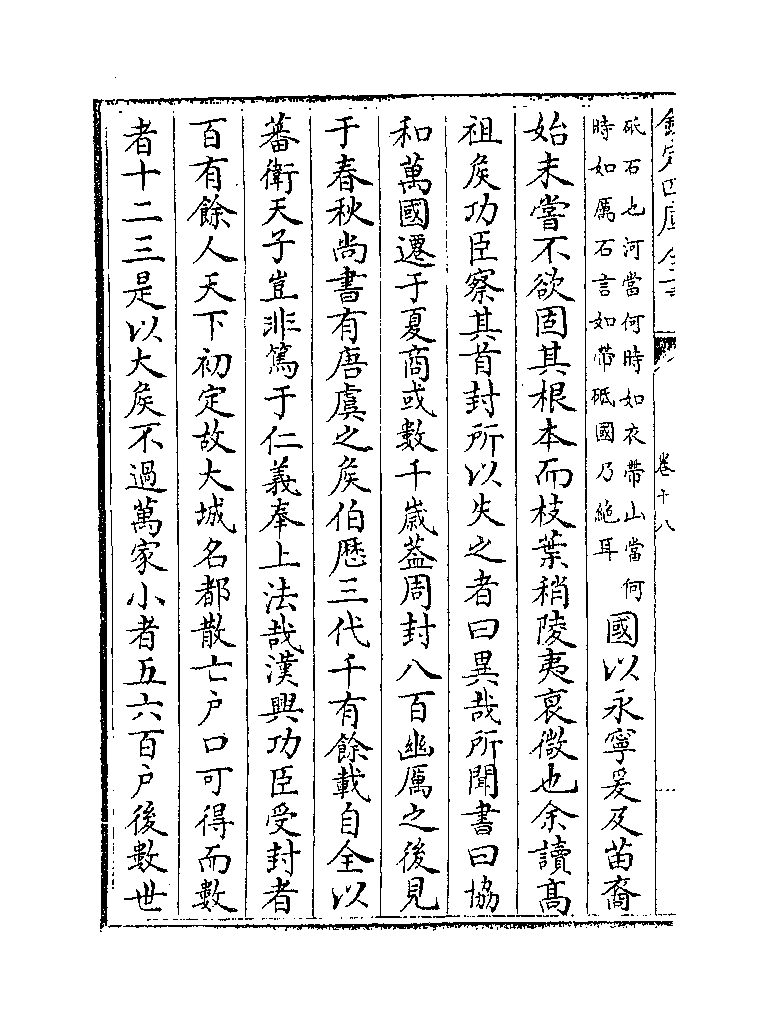 欽定四庫全書
卷十八
砥石也河當何時如衣帶山當何
時如厲石言如帶砥國乃絶耳
國以永寧爰及苗裔
始未嘗不欲固其根本而枝葉稍陵夷衰微也余讀髙
祖矦功臣察其首封所以失之者曰異哉所聞書曰協
和萬國遷于夏商或數千歲葢周封八百幽厲之後見
于春秋尚書有唐虞之矦伯歴三代千有餘載自全以
蕃衛天子豈非篤于仁義奉上法哉漢興功臣受封者
百有餘人天下初定故大城名都散亡户口可得而數
者十二三是以大矦不過萬家小者五六百户後數世